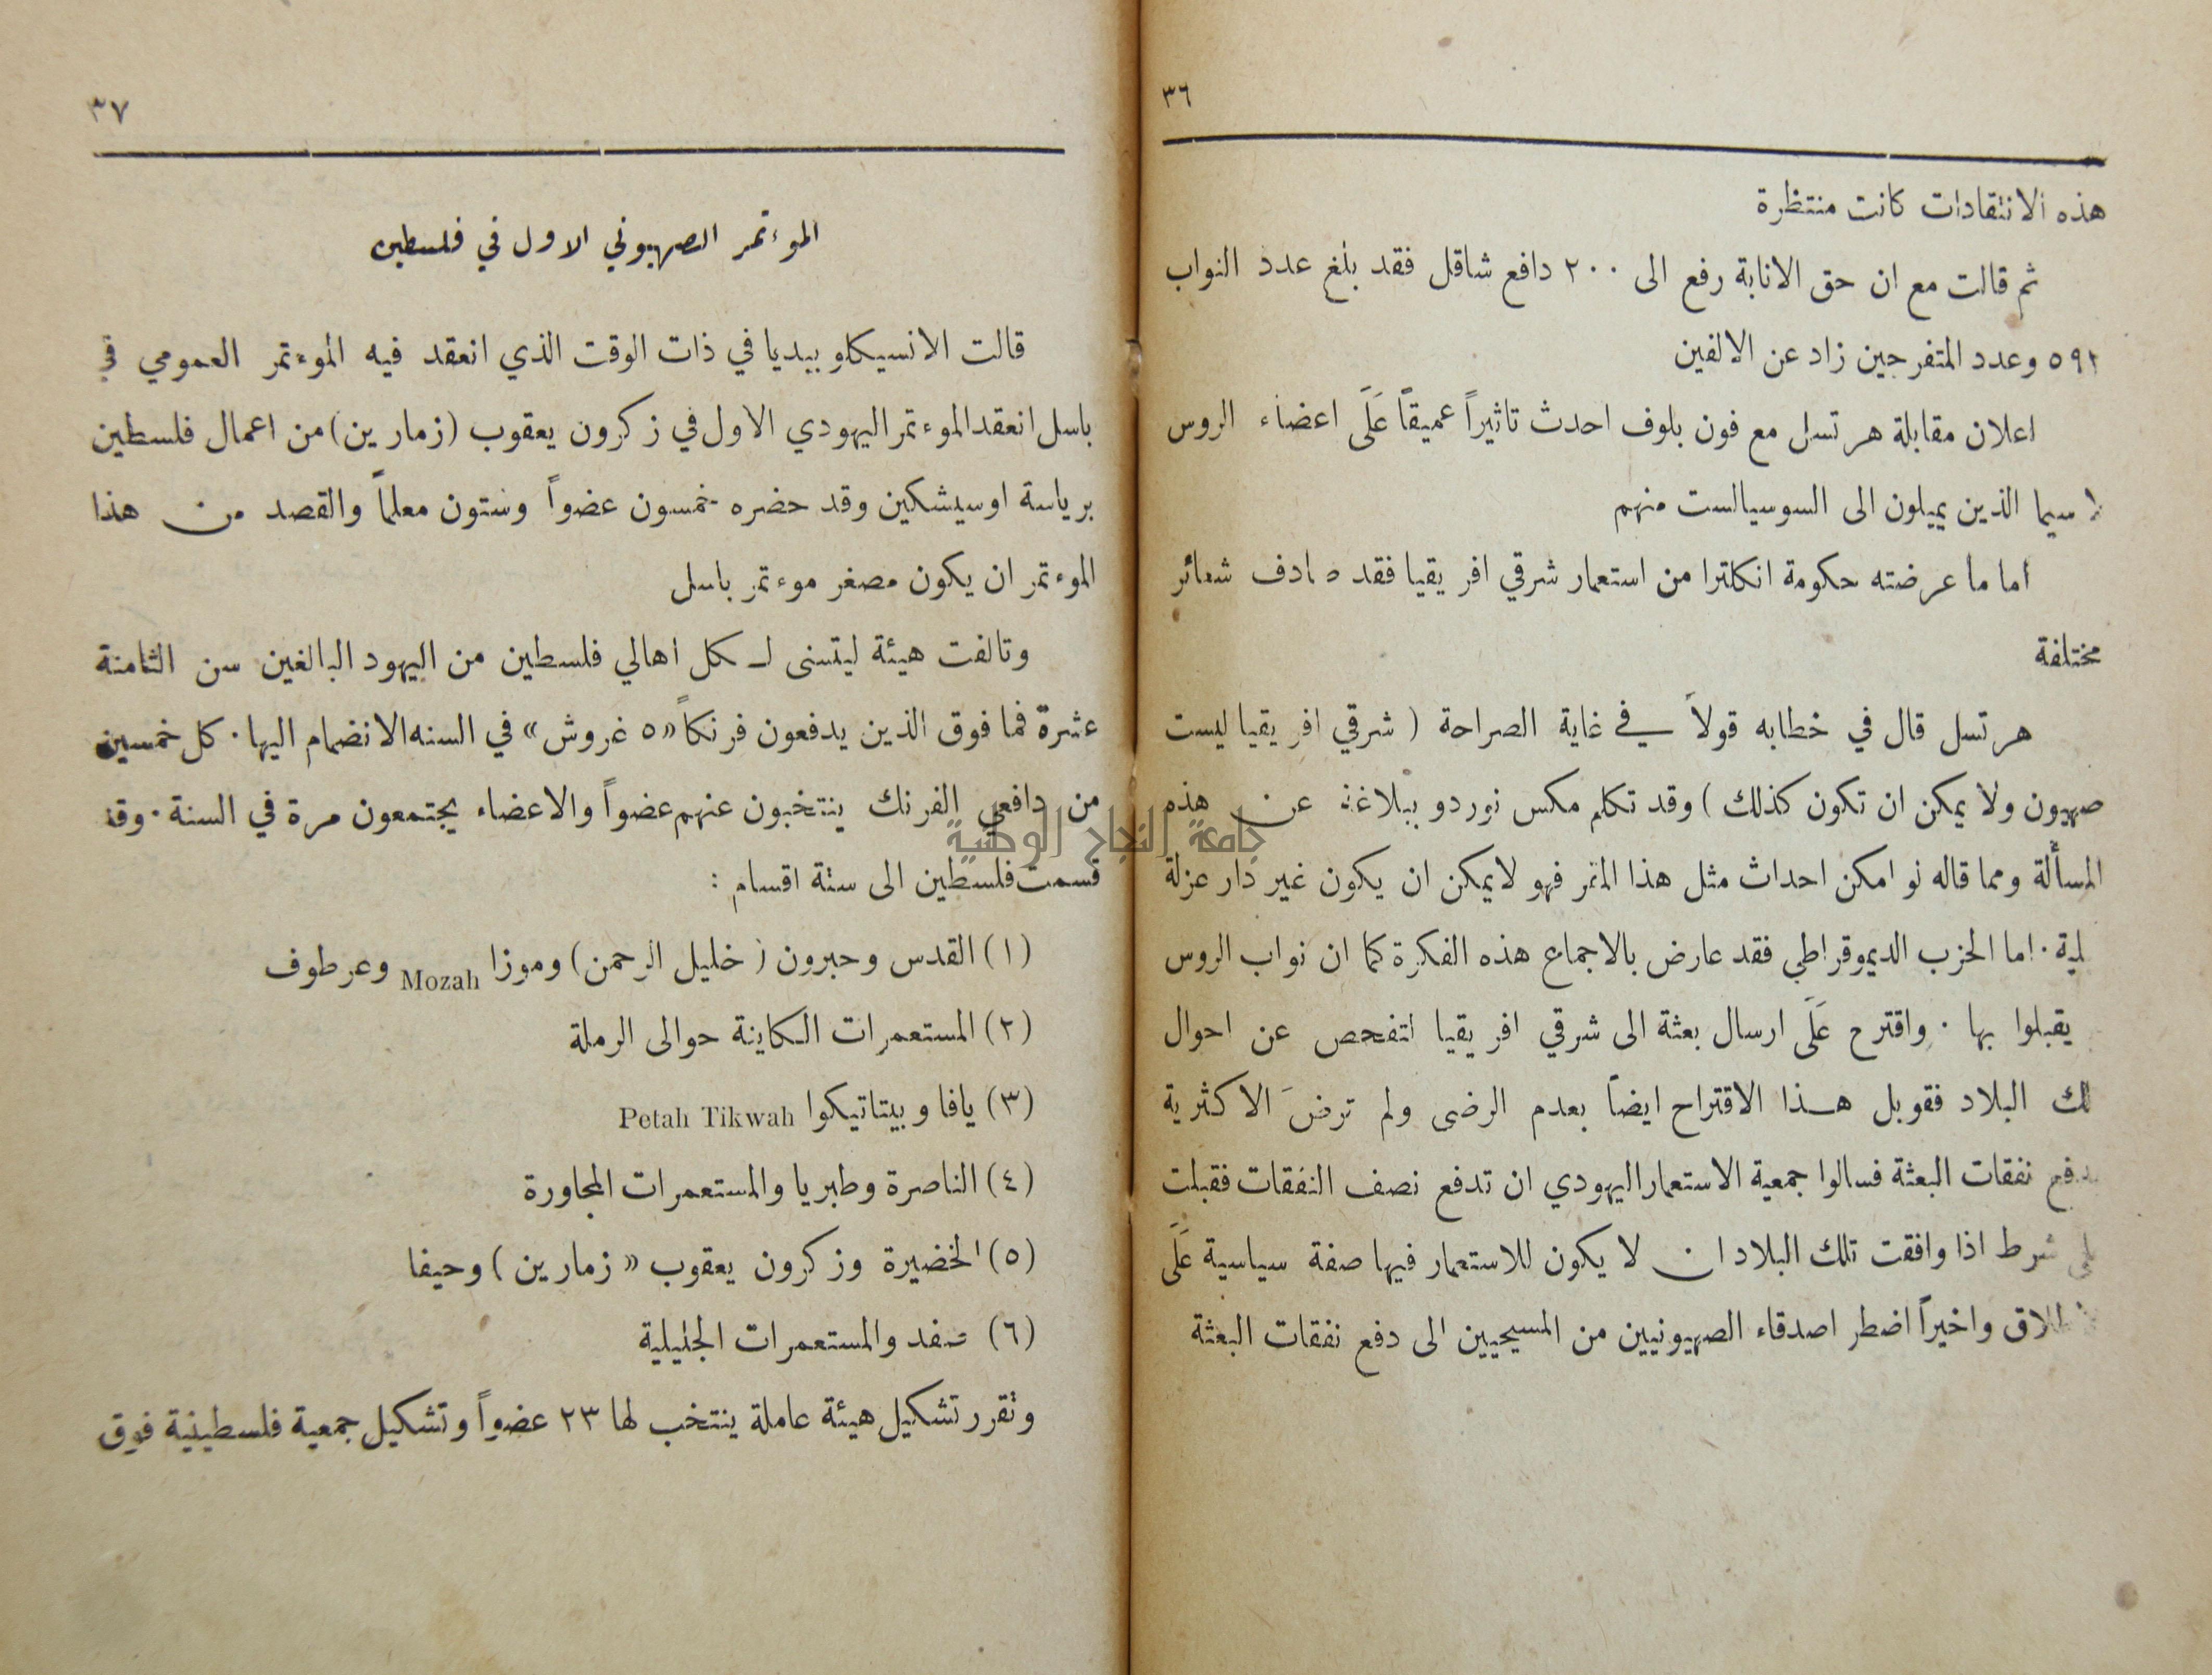 ٣٦
هذه الانتقادات كانت منتظرة
ثم قالت مع ان حق الانابة رفع الى ٢٠٠ دافع شاقل فقد بلغ عدد النواب
٥٩٢ وعدد المتفرجين زاد عن الالفين
اعلان مقابلة هرتسل مع فون بلوف احدث تاثيراً عميقاً عَلَى اعضاء الروس
لا سيما الذين يميلون الى السوسيالست منهم
اما ما عرضته حكومة انكلترا من استعمار شرقي افريقيا فقد صادف شعائر
مختلفة
هرتسل قال في خطابه قولاً في غاية الصراحة ( شرقي افريقيا ليست
صهيون ولا يمكن ان تكون كذلك ) وقد تكلم مكس نوردو ببلاغة عن هذه
المسألة ومما قاله لو امكن احداث مثل هذا المقر فهو لا يمكن ان يكون غير دار عزلة
اما الحزب الديموقراطي فقد عارض بالاجماع هذه الفكرة كما ان نواب الروس
يقبلوا بها ٠ واقترح عَلَى ارسال بعثة الى شرقي افريقيا لتفحص عن احوال
البلاد فقوبل هذا الاقتراح ايضاً بعدم الرضى ولم ترضَ الاكثرية
نفقات البعثة فسالوا جمعية الاستعمار اليهودي ان تدفع نصف النفقات فقبلت
شرط اذا وافقت تلك البلاد ان لا يكون للاستعمار فيها صفة سياسية عَلَى
واخيراً اضطر اصدقاء الصهيونيين من المسيحيين الى دفع نفقات البعثة
٣٧
الموءتمر الصهيوني الاول في فلسطين
قالت الانسيكلوبيديا في ذات الوقت الذي انعقد فيه الموءتمر العمومي في
باسل انعقد الموءتمر اليهودي الاول في زكرون يعقوب (زمارين) من اعمال فلسطين
برياسة اوسيشكين وقد حضره خمسون عضواً وستون معلماً والقصد من هذا
الموءتمر ان يكون مصغر موءتمر باسل
وتالفت هيئة ليتسنى لكل اهالي فلسطين من اليهود البالغين سن الثامنة
عشرة فما فوق الذين يدفعون فرنكاً «٥ غروش» في السنه الانضمام اليها ٠ كل خمسين
من دافعي الفرنك ينتخبون عنهم عضواً والاعضاء يجتمعون مرة في السنة ٠ وقد
قسمت فلسطين الى ستة اقسام :
(١) القدس وحبرون ( خليل الرحمن) وموزا Mozah وعرطوف
(٢) المستعمرات الكاينة حوالى الرملة
(٣) يافا وبيتاتيكوا Petah Tikwah
(٤) الناصرة وطبريا والمستعمرات المجاورة
(٥) الخضيرة وزكرون يعقوب « زمارين ) وحيفا
(٦) صفد والمستعمرات الجليلية
وتقرر تشكيل هيئة عاملة ينتخب لها ٢٣ عضواً وتشكيل جمعية فلسطينية فوق
جامعة النجاح الوطنية